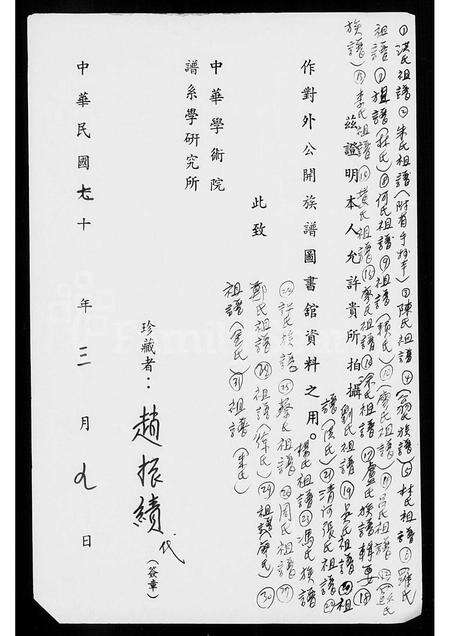 ①洪氏祖譜②朱氏祖譜(附有手抄本)③陳氏祖譜④翁氏族譜⑤林氏祖譜⑥羅氏
祖譜⑦祖譜(林氏)⑧何氏祖譜⑨祖譜(賴氏)⑩祖譜(廖氏)⑪呂氏祖譜⑫
族譜⑬李氏祖譜⑭黃氏祖譜⑮廖氏祖譜⑯余氏祖譜⑰盧氏族譜輯要⑱
茲證明本人允許貴所拍攝劉氏祖譜⑲吳氏祖譜⑳祖
譜(洪氏)㉑清河張氏祖譜㉒
作對外公開族譜圖書館資料之用。楊氏祖譜㉓馮氏族譜
㉔許氏族譜㉕蔡氏祖譜㉖周氏祖譜㉗
此致
鄭氏祖譜㉘祖譜(徐氏)㉙祖譜(廖氏)㉚
祖譜(余氏)㉛祖譜(朱氏)
中華學術院
譜系學研究所
珍藏者:趙振績代(簽章)
中華民國七十年三月九日